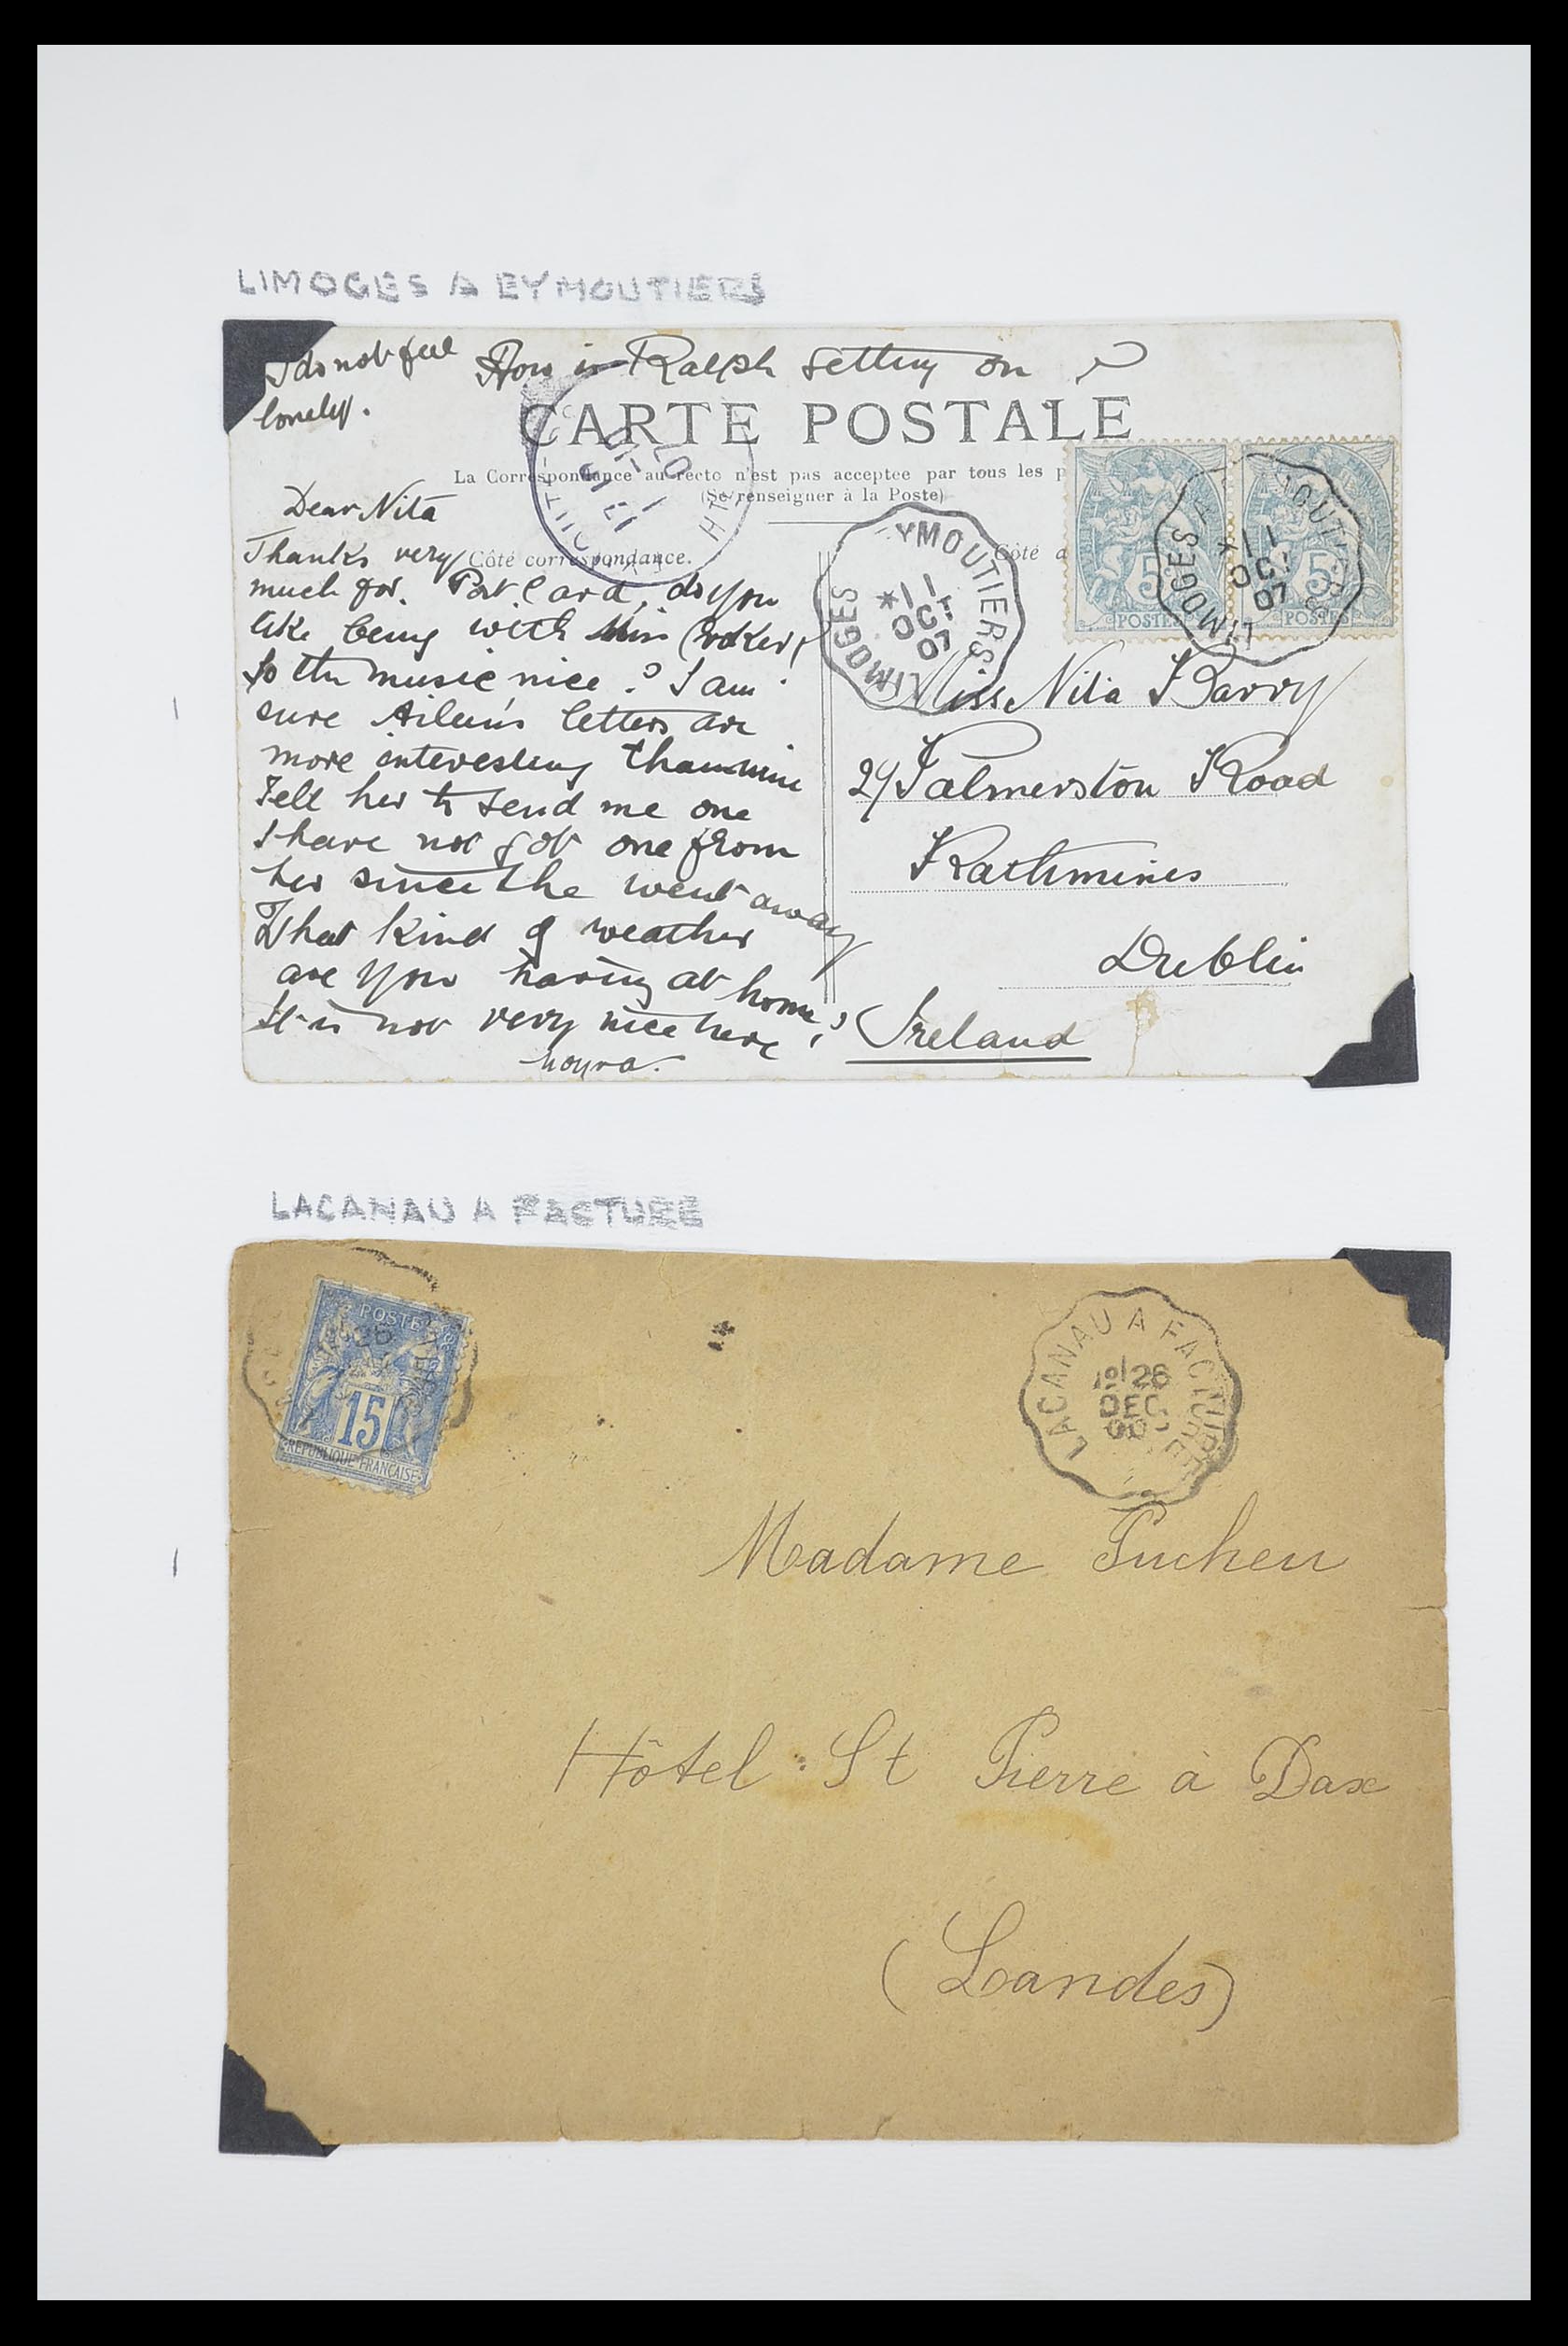 LIMOGES A EYMOUTIERS
I do not feel
lonely.
How is Ralph getting on ?
CARTE POSTALE
La Correspondance au recto n'est pas acceptee par tous les p
(Se renseigner à la Poste)
Côté correspondance.
Côté d
Dear Nita
Thanks very
much for. Post Card, do you
like being with Miss
Is the music nice? I am
sure Aileen's letters are
more interesting than mine
Tell her to send me one
I have not got one from
her since she went away
What kind of weather
are you having at home?
It is not very nice here
Moyra.
YMOUTIERS
LIMOGES
*11
OCT
07
LIMOGES A OUTIERS
*11
OCT
07
5c 5c
POSTES POSTES
Miss Nita Barry
29 Palmerston Road
Rathmines
Dublin
Ireland
LACANAU A FACTURE
POSTES
15
REPUBLIQUE FRANCAISE
LACANAU A FACTURE
1º/26
DEC
00
Madame Pucheu
Hôtel St Pierre à Dax
(Landes)